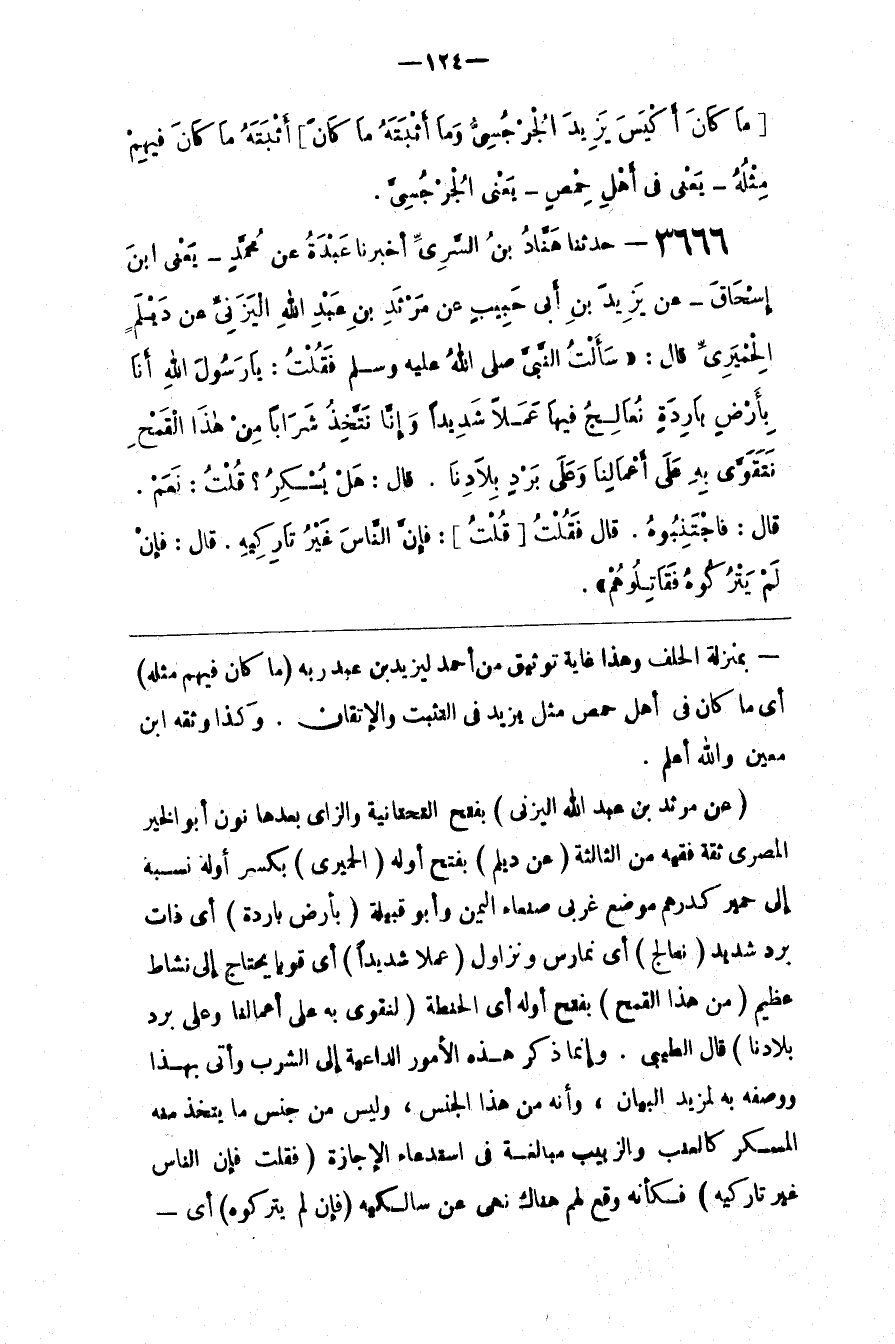 —١٢٤—
[ مَا كَانَ أَكْيَسَ يَزِيدَ الْجُرْجُسِيَّ وَمَا أَثْبَتَهُ مَا كَانَ ] أَثْبَتَهُ مَا كَانَ فِيهِمْ
مِثْلُهُ – يَعْنِى فى أَهْلِ حِمْصٍ – يَعْنِى الْجُرْجُسِىَّ .
٣٦٦٦ – حدثنا هَنَّادُ بنُ السَّرِىِّ أخبرنا عَبْدَةُ عن مُحمَّدٍ – يَعْنِى ابنَ
إِسْحَاقَ – عن يَزِيدَ بنِ أَبى حَبِيبٍ عن مَرْثَدِ بنِ عَبْدِ اللهِ الْيَزَنِىِّ عن دَيْلَمٍ
الْحِمْيَرِىِّ قال : « سَأَلْتُ النَّبىَّ صلى اللهُ عليه وسلم فَقُلْتُ : يارَسُولَ اللهِ أَنا
بِأَرْضٍ بارِدَةٍ نُعَالِجُ فيها عَمَلاً شَدِيداً وَإِنَّا نَتَّخِذُ شَرَاباً مِنْ هٰذَا الْقَمْحِ
نَتَقَوَّى بِهِ عَلَى أَعْمالِنا وَعَلَى بَرْدِ بِلاَدِنَا . قال : هَلْ يُسْكِرُ ؟ قُلْتُ : نَعَمْ .
قال : فاجْتَنِبُوهُ . قال فَقُلْتُ [ قُلْتُ ] : فإِنَّ النَّاسَ غَيْرُ تارِكِيهِ . قال : فإِنْ
لَمْ يَتْرُكُوهُ فَقَاتِلُوهُمْ» .
– بمنزلة الحلف وهذا غاية توثيق من أحمد ليزيد بن عبد ربه (ما كان فيهم مثله)
أى ما كان فى أهل حمص مثل يزيد فى التثبت والإتقان . وكذا وثقه ابن
معين والله أعلم .
( عن مرثد بن عبد الله اليزنى ) بفتح التحتانية والزاى بعدها نون أبو الخير
المصرى ثقة فقيه من الثالثة ( عن ديلم ) بفتح أوله ( الحميرى ) بكسر أوله نسبة
إلى حمير كدرهم موضع غربى صنعاء اليمن وأبو قبيلة ( بأرض باردة ) أى ذات
برد شديد ( نعالج ) أى نمارس ونزاول ( عملا شديداً ) أى قويا يحتاج إلى نشاط
عظيم ( من هذا القمح ) بفتح أوله أى الحنطة ( لنقوى به على أعمالنا وعلى برد
بلادنا ) قال الطيبى . وإنما ذكر هذه الأمور الداعية إلى الشرب وأتى بهذا
ووصفه به لمزيد البيان ، وأنه من هذا الجنس ، وليس من جنس ما يتخذ منه
المسكر كالعنب والزبيب مبالغة فى استدعاء الإجازة ( فقلت فإن الناس
غير تاركيه ) فكأنه وقع لهم هناك نهى عن سالكيه (فإن لم يتركوه) أى –